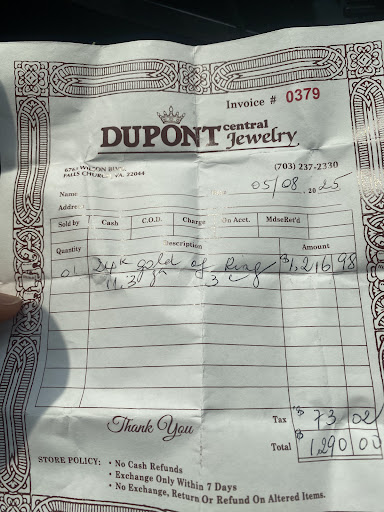 Invoice # 0379
DUPONT central Jewelry
6783 WILSON BLVD.
FALLS CHURCH, VA. 22044
(703) 237-2330
Name
05/08 . 2025
Addre
Sold by Cash C.O.D. Charge On Acct. MdseRet'd
Quantity Description Amount
01 24K gold of Ring $1,216 98
11.3 3
Thank You
Tax $ 73 02
Total $ 1,290 00
STORE POLICY: • No Cash Refunds
• Exchange Only Within 7 Days
• No Exchange, Return Or Refund On Altered Items.